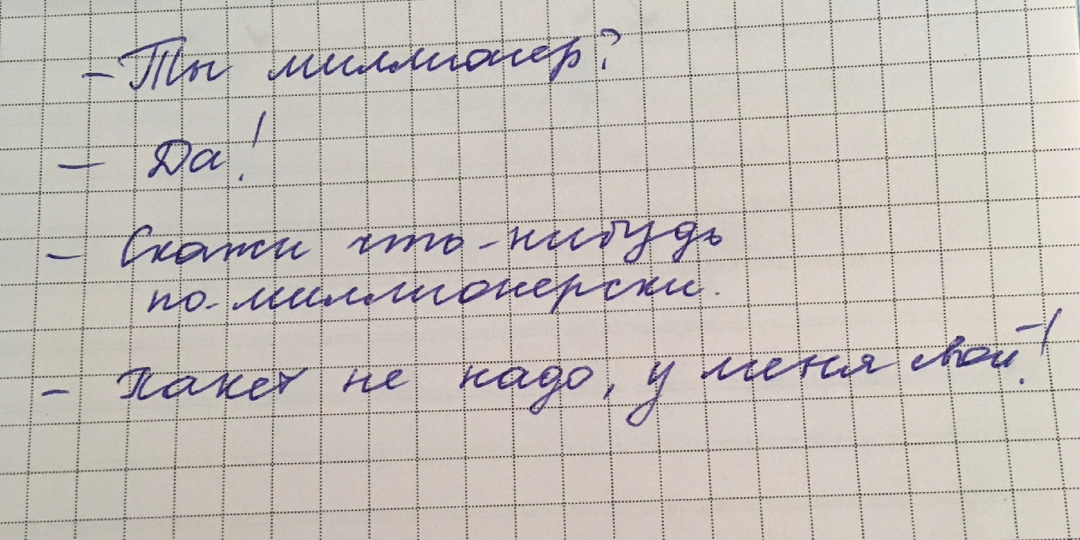 - Ты миллионер?
- Да!
- Скажи что-нибудь
по-миллионерски.
- Пакет не надо, у меня свой!